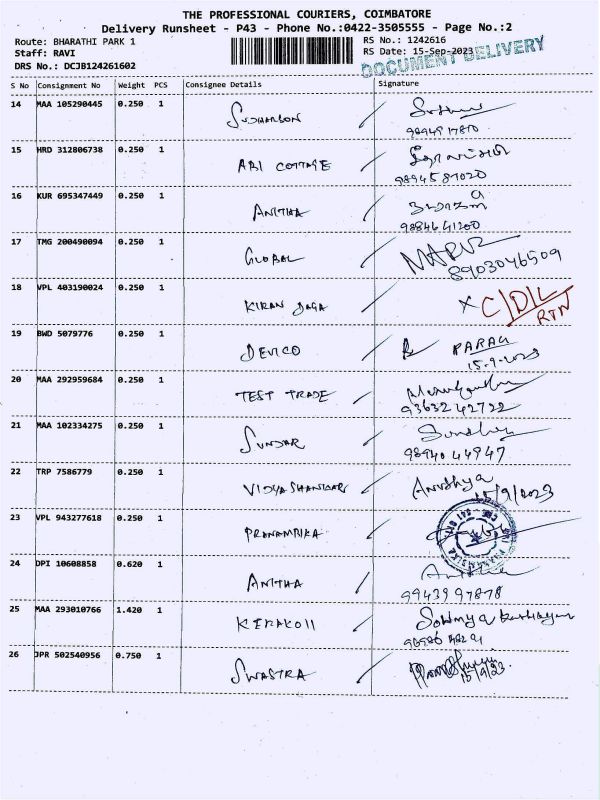 THE PROFESSIONAL COURIERS, COIMBATORE
Delivery Runsheet - P43 - Phone No.:0422-3505555 - Page No.:2
Route: BHARATHI PARK 1 RS No.: 1242616
Staff: RAVI RS Date: 15-Sep-2023
DRS No.: DCJB124261602 DOCUMENT DELIVERY
S No Consignment No Weight PCS Consignee Details Signature
14 MAA 105290445 0.250 1 SUDHARSON
98949 17810
15 HRD 312806738 0.250 1 ARI COTTAGE
98945 87020
16 KUR 695347449 0.250 1 ANITHA
98846 41200
17 TMG 200490094 0.250 1 GLOBAL
8903046509
18 VPL 403190024 0.250 1 KIRAN DAGA X C/D/L
RTN
19 BWD 5079776 0.250 1 DEVICO PARAG
15.9.2023
20 MAA 292959684 0.250 1 TEST TRADE
93632 42722
21 MAA 102334275 0.250 1 SUNDAR
98940 44947
22 TRP 7586779 0.250 1 VIDYA SHANKAR Anushya
15/9/2023
23 VPL 943277618 0.250 1 PRANAMBIKA
24 DPI 10608858 0.620 1 ANITHA
99439 97878
25 MAA 293010766 1.420 1 KERAKOLL Sowmya
26 JPR 502540956 0.750 1 SWASTRA
15/9/23.